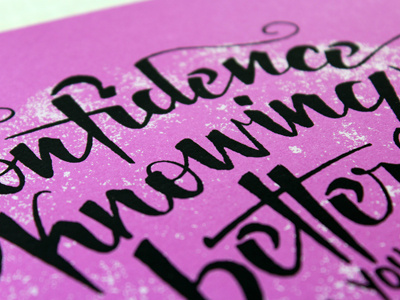 onfidence
knowing
better
you